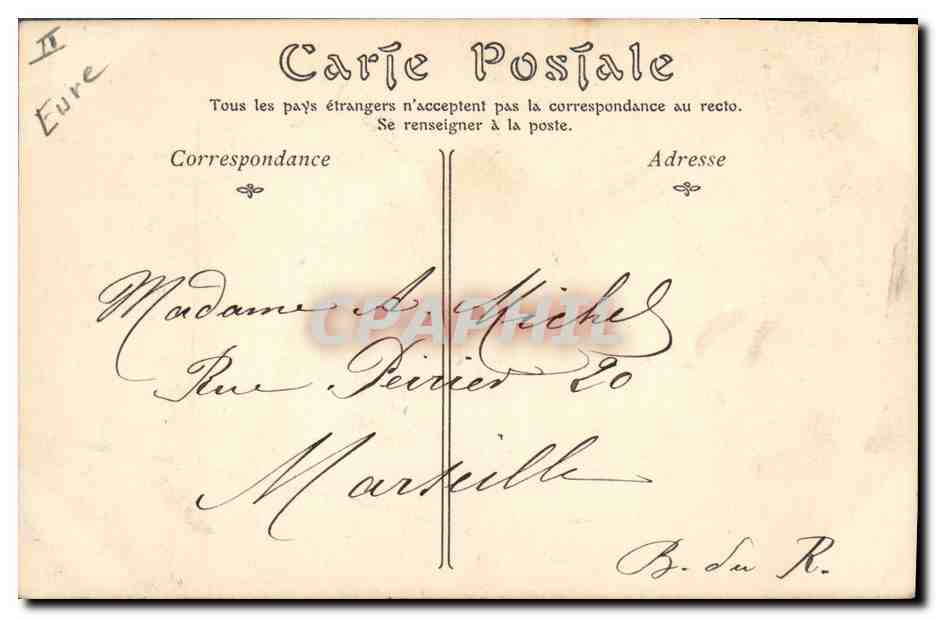 II
Eure
Carte Postale
Tous les pays étrangers n'acceptent pas la correspondance au recto.
Se renseigner à la poste.
Correspondance
Adresse
Madame A. Michel
Rue 20
Marseille
B. du R.
CPAPHIL